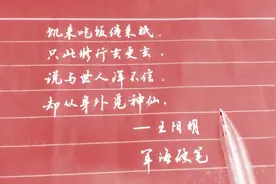 饥来吃饭倦来眠，
只此修行玄更玄。
说与世人浑不信，
却从身外觅神仙。
——王阳明
军海硬笔